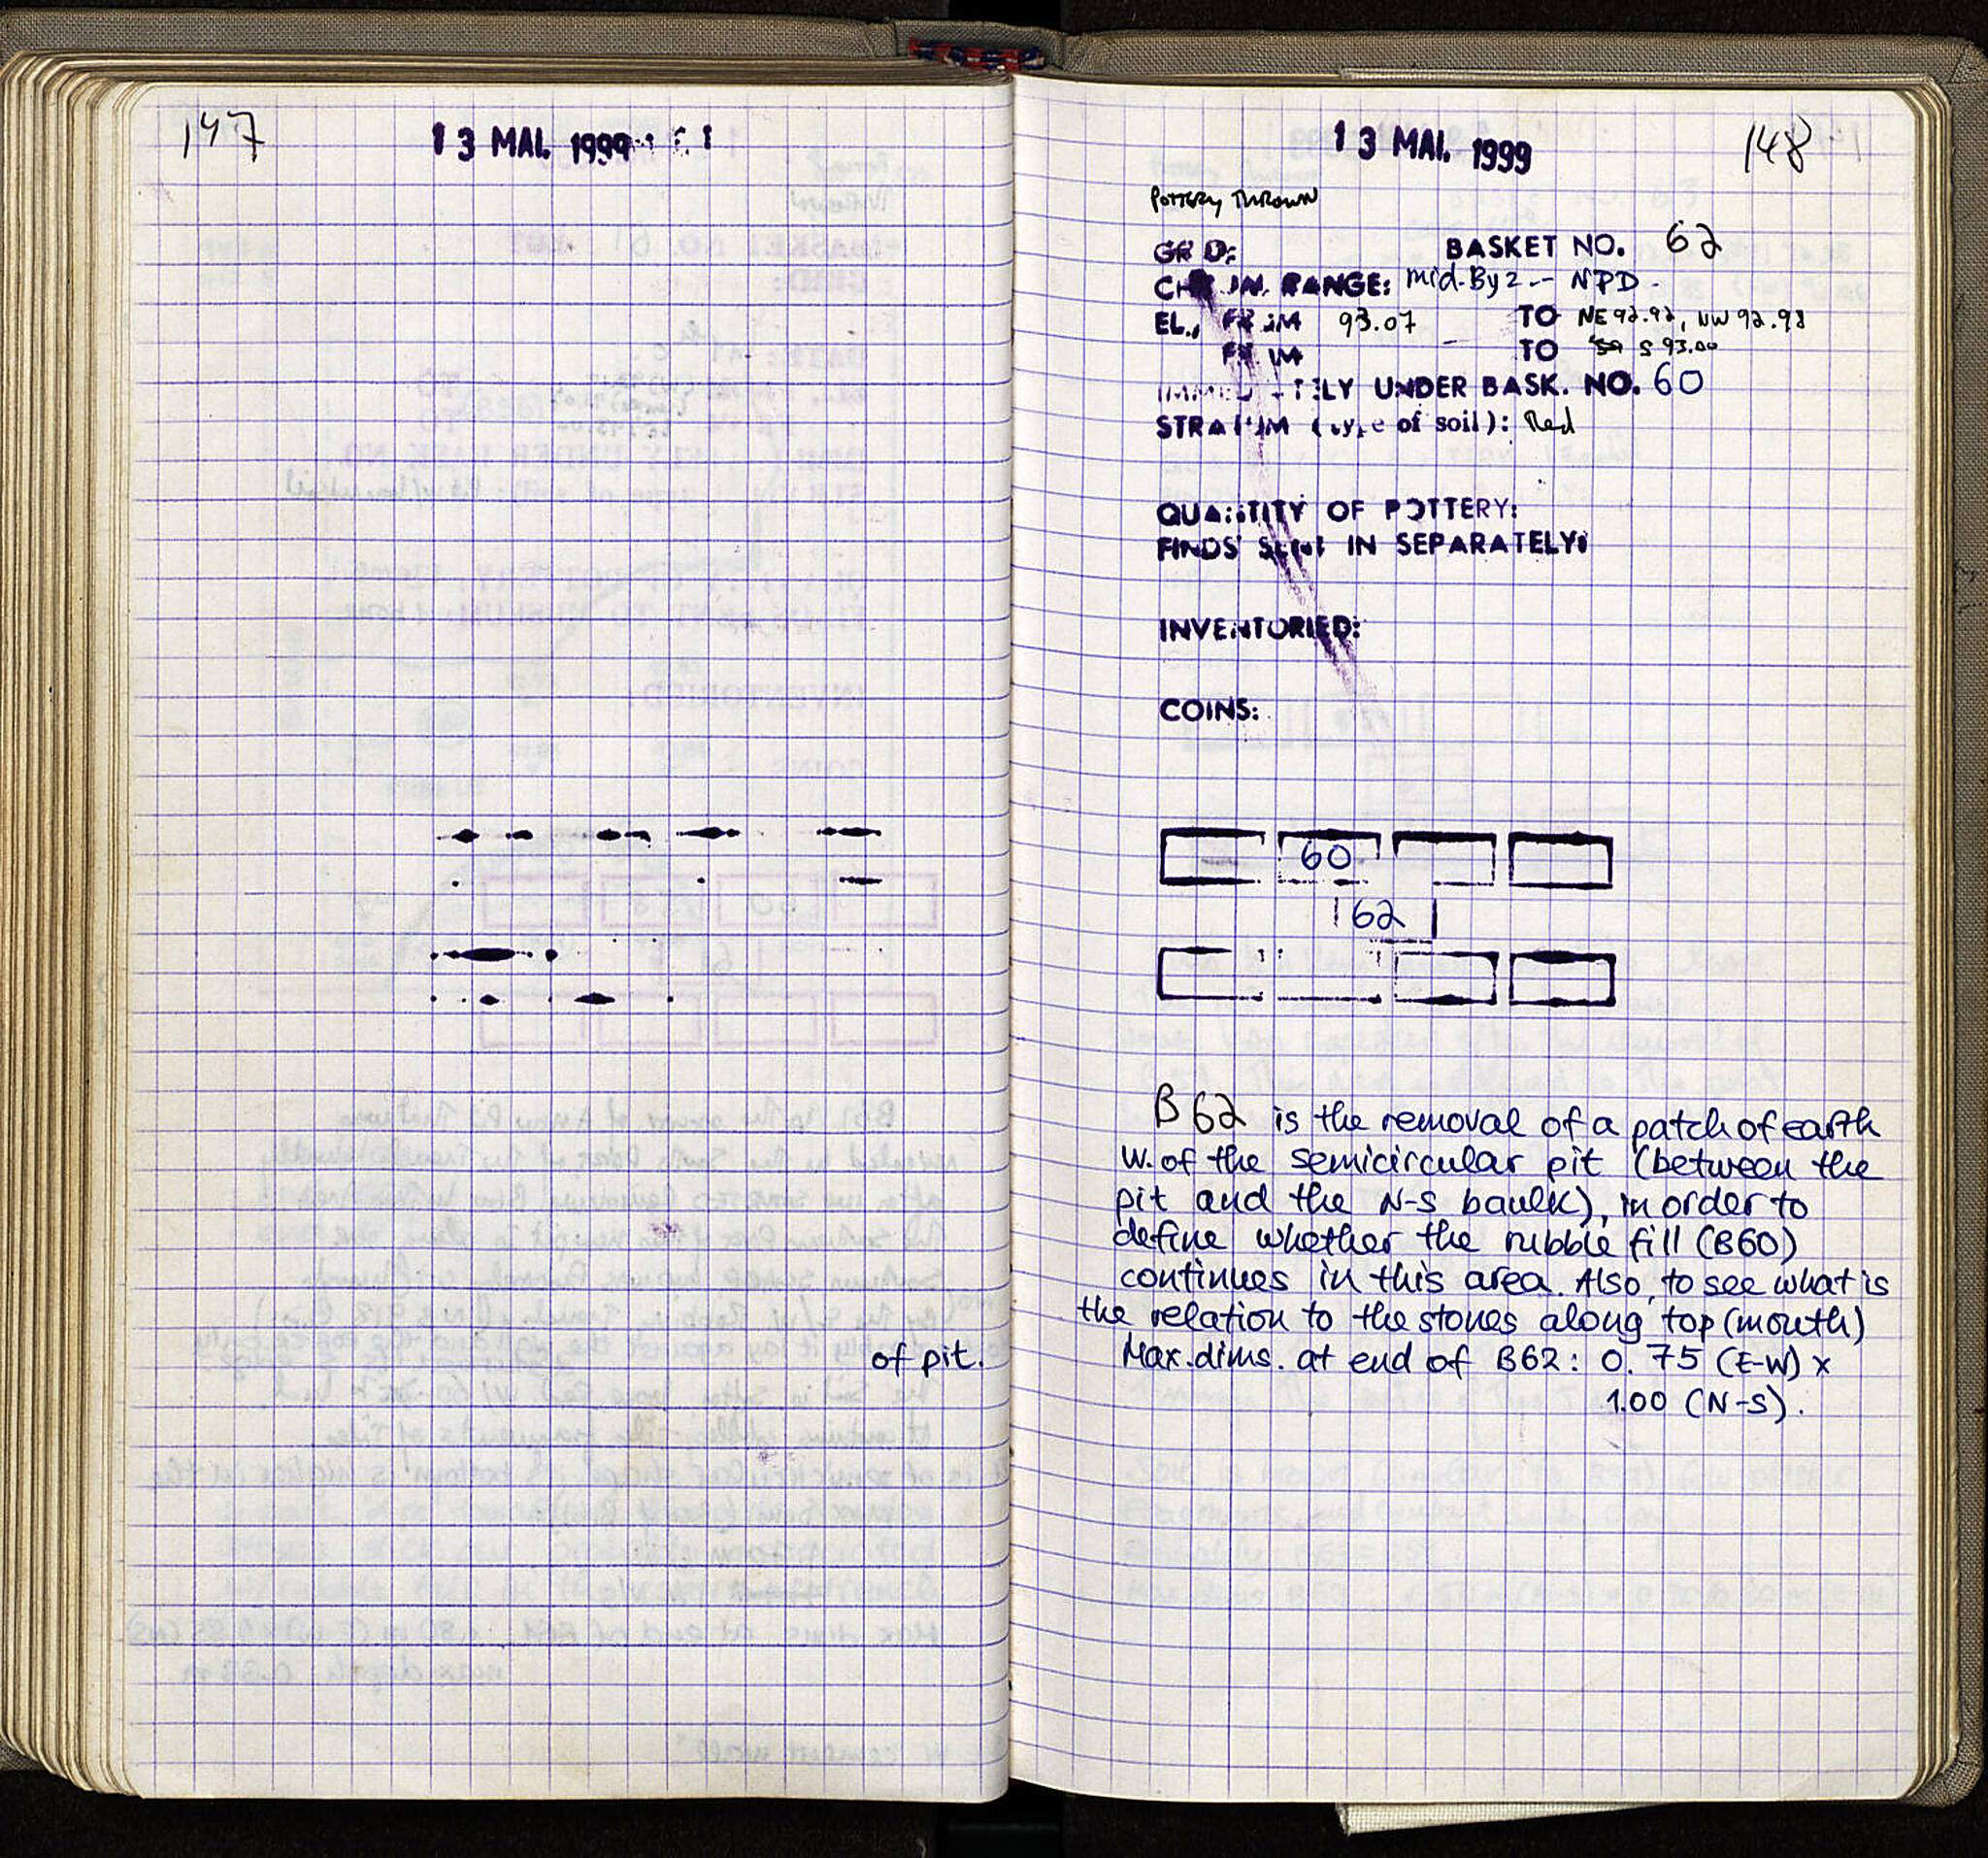 147
13 MAI. 1999
of pit.
13 MAI. 1999
148
POTTERY THROWN
GRID:
BASKET NO. 62
CHRON. RANGE: Mid-Byz -- NPD -
EL., FROM 93.07 TO NE 92.92, NW 92.98
FROM TO S 93.00
IMMEDIATELY UNDER BASK. NO. 60
STRATUM (type of soil): Red
QUANTITY OF POTTERY:
FINDS SENT IN SEPARATELY:
INVENTORIED:
COINS:
60
62
B 62 is the removal of a patch of earth
W. of the semicircular pit (between the
pit and the N-S baulk), in order to
define whether the rubble fill (B60)
continues in this area. Also, to see what is
the relation to the stones along top (mouth)
Max. dims. at end of B62: 0.75 (E-W) x
1.00 (N-S).